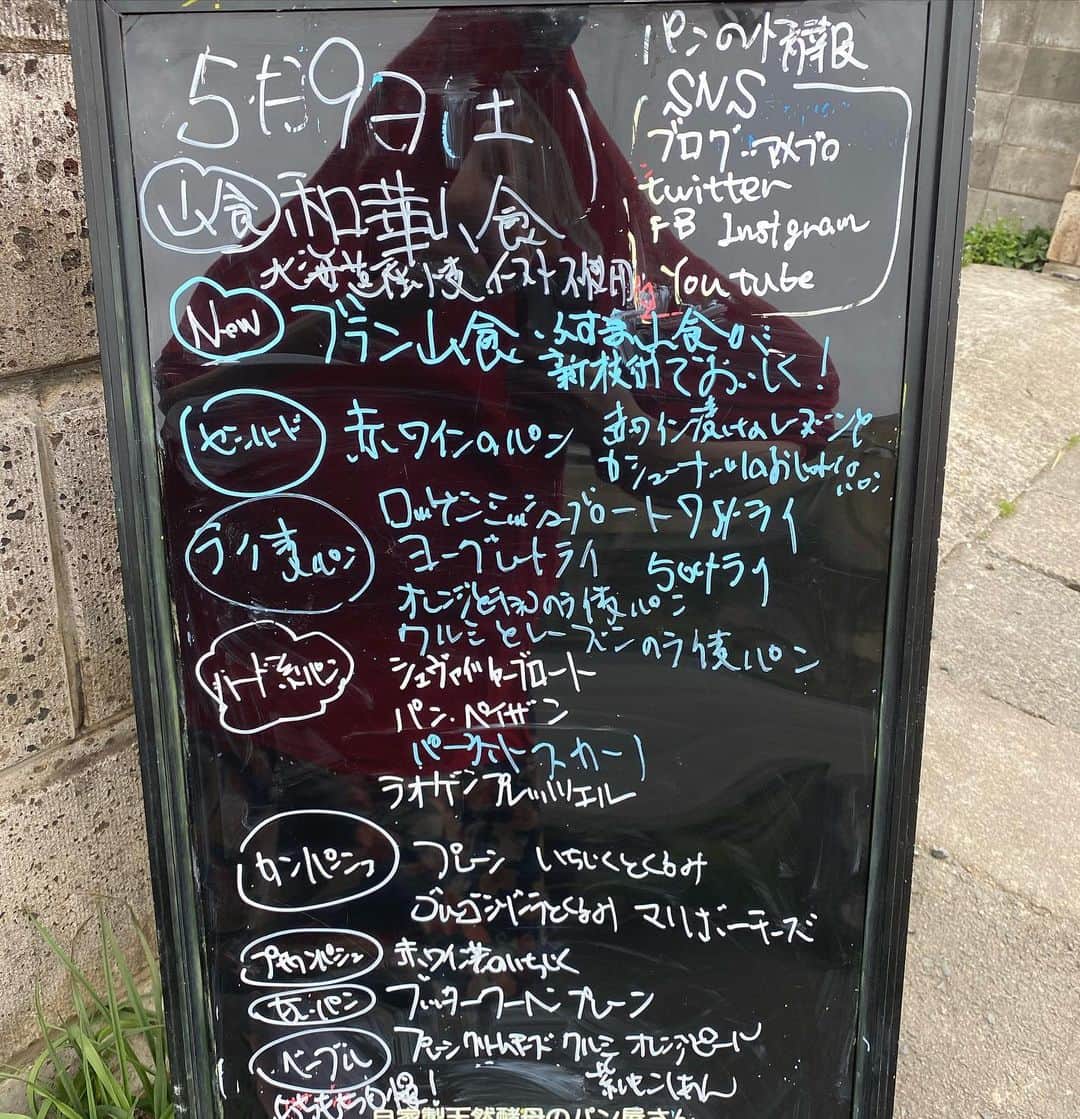 5月9日(土)
パンの情報
SNS
ブログ:アメブロ
twitter
FB Instgram
Youtube
山食 和華山食
北海道産小麦 イースト不使用
New ブラン山食
山食が、
新技術でおいしく!
セミハード 赤ワインのパン 赤ワイン漬けのレーズンと
カシューナッツ
ライ麦パン ロッゲンミッシュブロート 75%ライ
ヨーグルトライ 50%ライ
オレンジと のライ麦パン
クルミとレーズンのライ麦パン
ハード系パン シュヴァイツァーブロート
パン・ペイザン
パーケットスカー
ラオゲンプレッツェル
カンパーニュ プレーン いちじくとくるみ
ゴルゴンゾーラとくるみ マリボーチーズ
プチカンパーニュ 赤ワイン煮のいちじく
甘いパン ブッタークーヘン プレーン
ベーグル プレーン クリームチーズ クルミ オレンジピール
自家製天然酵母のパン屋さん